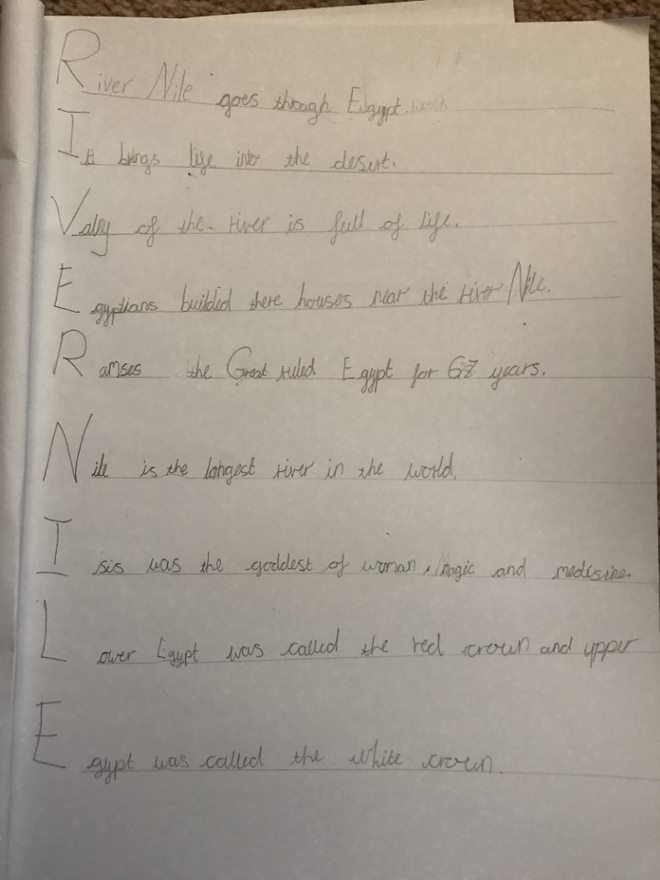 River Nile goes through Egypt.
It brings life into the desert.
Valey of the river is full of life.
Egyptians builded there houses near the river Nile.
Ramses the Great ruled Egypt for 67 years.
Nile is the longest river in the world.
Isis was the goddest of woman, Magic and medisine.
Lower Egypt was called the red crown and upper
Egypt was called the white crown.